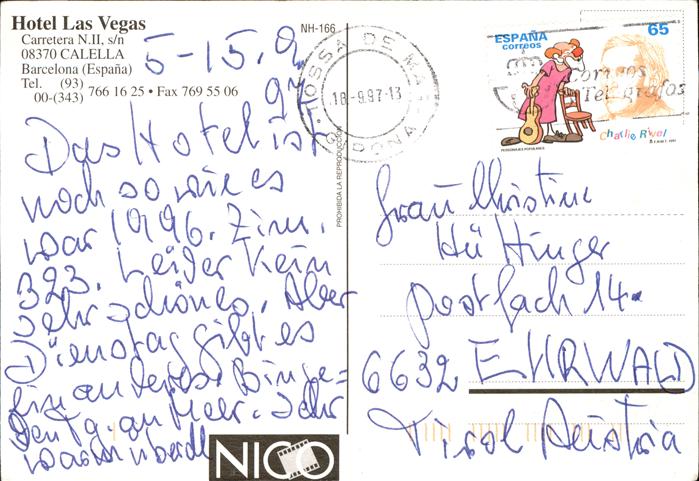 Hotel Las Vegas
Carretera N.II, s/n
08370 CALELLA
Barcelona (España)
Tel. (93)
00-(343) 766 16 25 • Fax 769 55 06
NH-166
5-15.9.
97
Das Hotel ist
noch so wie es
war 1996. Zim.
323. Leider kein
sehr schönes. Aber
Dienstag gibt es
ein anderes. Bin ge=
den Tag am Meer. Sehr
warm
NICO
PROHIBIDA LA REPRODUCCION
TOSSA DE MAR
18-9.97-13
GIRONA
ESPAÑA
correos
65
Correos
Telegrafos
Charlie Rivel
PERSONAJES POPULARES
Frau Christine
Hü
Postfach 14.
6632 EHRWALD
Tirol Austria